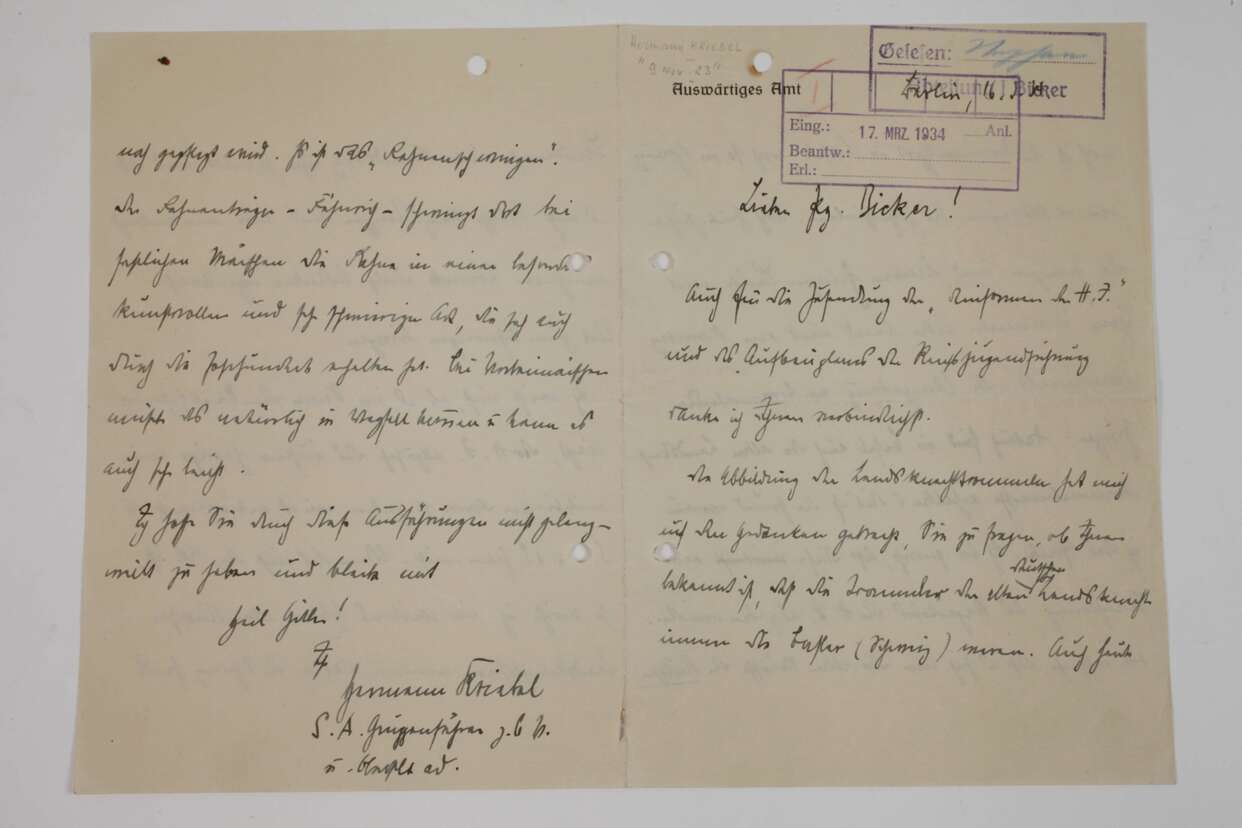 Hermann KRIEBEL
"9 Nov. 23"
Auswärtiges Amt
Gelesen:
Abteilung Bicker
Berlin, 16.3.34
Eing.: 17. MRZ. 1934 Anl.
Beantw.:
Erl.:
Lieber Pg. Bicker!
Auch für die Zusendung der „Uniformen der H.J."
und des Aufbauplans der Reichsjugendführung
danke ich Ihnen verbindlichst.
Die Abbildung der Landsknechttrommeln hat mich
auf den Gedanken gebracht, Sie zu fragen, ob Ihnen
bekannt ist, daß die Trommler der alten deutschen Landsknechte
immer die Basler (Schweiz) waren. Auch heute
noch gepflegt wird. Es ist das „Fahnenschwingen".
Der Fahnenträger – Fähnrich – schwingt dort bei
festlichen Märschen die Fahne in einer besonders
kunstvollen und sehr schwierigen Art, die sich auch
durch die Jahrhunderte erhalten hat. Bei Vorbeimärschen
müßte es natürlich in Wegfall kommen u. kann es
auch sehr leicht.
Ich hoffe Sie durch diese Ausführungen nicht gelang-
weilt zu haben und bleibe mit
Heil Hitler!
Ihr
Hermann Kriebel
S.A. Gruppenführer z.b.V.
u. Oberstlt a.D.